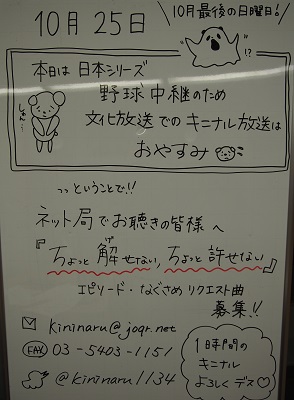 10月25日
10月最後の日曜日!
本日は 日本シリーズ
野球中継のため
文化放送での キニナル放送は
おやすみ
!?
っっということで!!
ネット局でお聴きの皆様へ
『ちょっと解せない、ちょっと許せない』
エピソード・なぐさめリクエスト曲
募集!!
kininaru@joqr.net
FAX 03-5403-1151
@kininaru1134
1時間の
キニナル
よろしくデス